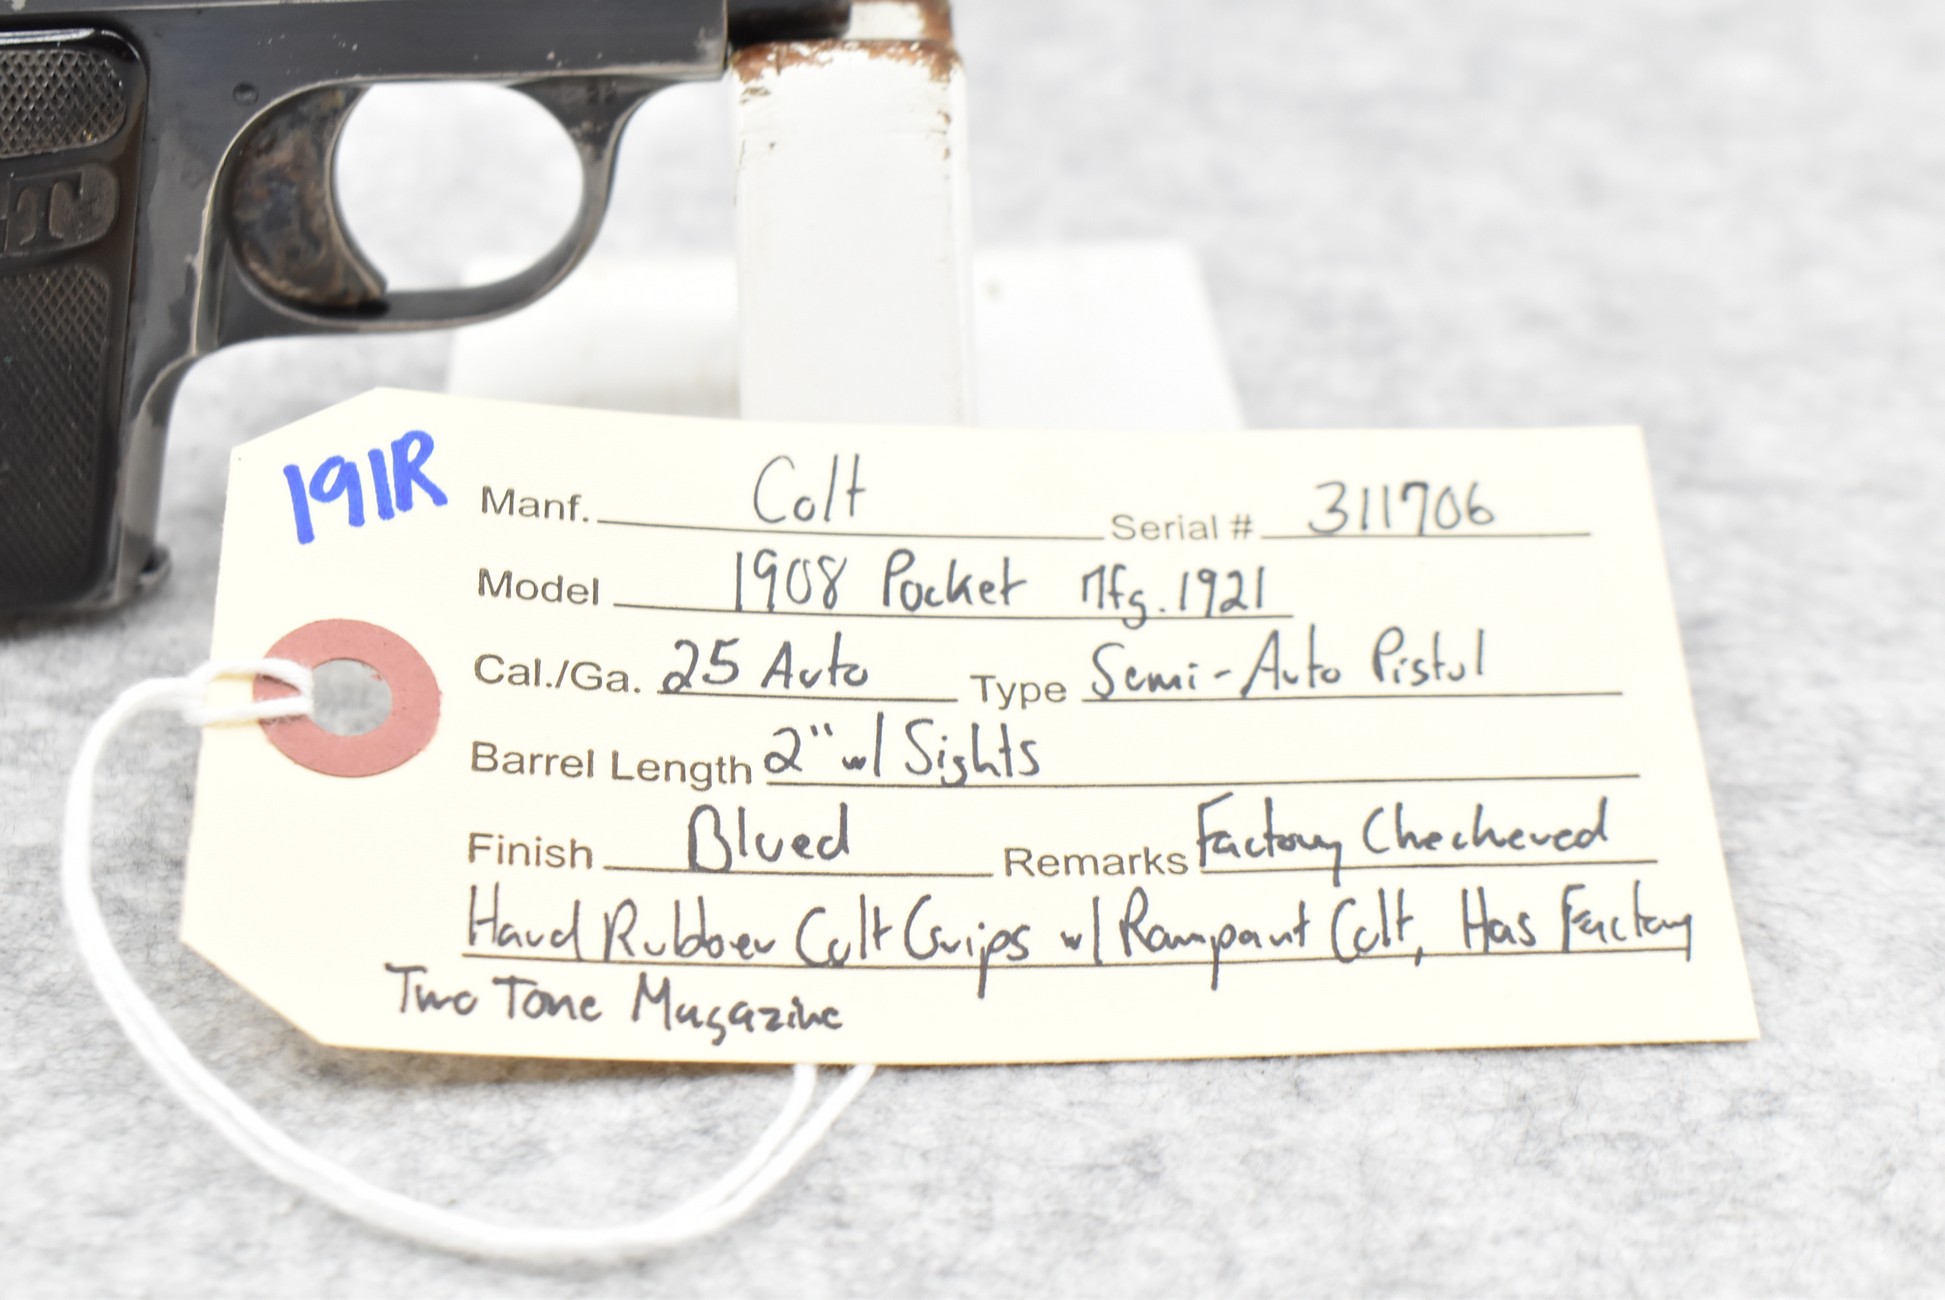 LT
191R
Manf. Colt Serial # 311706
Model 1908 Pocket Mfg. 1921
Cal./Ga. 25 Auto Type Semi-Auto Pistol
Barrel Length 2" w/ Sights
Finish Blued Remarks Factory Checkered
Hard Rubber Colt Grips w/ Rampant Colt, Has Factory
Two Tone Magazine